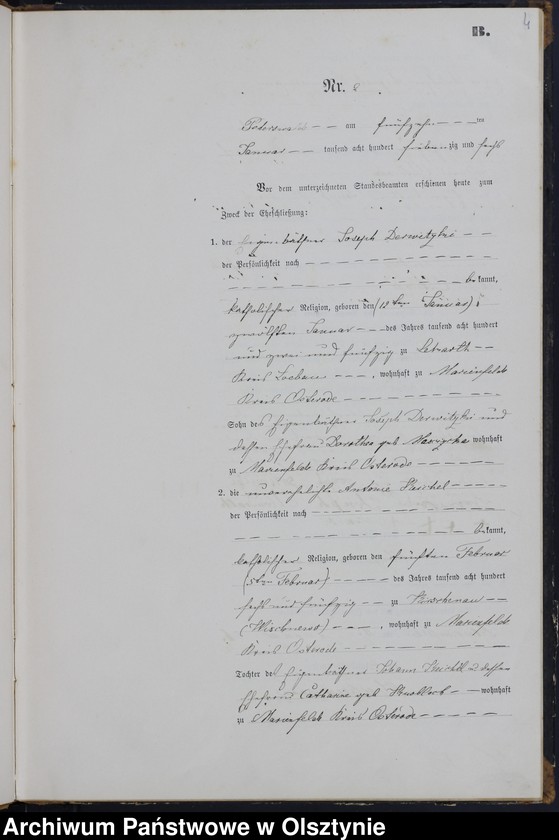 4
B.
Nr. 2.
Peterswalde am fünfzehnten
Januar tausend acht hundert siebenzig und sechs
Vor dem unterzeichneten Standesbeamten erschienen heute zum
Zweck der Eheschließung:
1. der Eigenkäthner Joseph
der Persönlichkeit nach
bekannt,
katholischer Religion, geboren den (12ten Januar)
zwölften Januar des Jahres tausend acht hundert
und zwei und fünfzig zu
Kreis Loebau, wohnhaft zu Marienfelde
Kreis Osterode
Sohn des Eigenkäthner Joseph und
dessen Ehefrau Dorothea geb wohnhaft
zu Marienfelde Kreis Osterode
2. die unverehelichte Antonie
der Persönlichkeit nach
bekannt,
katholischer Religion, geboren den fünften Februar
(5ten Februar) des Jahres tausend acht hundert
sechs und fünfzig zu
, wohnhaft zu Marienfelde
Kreis Osterode
Tochter des Eigenkäthner Johann u dessen
Ehefrau Catharine geb wohnhaft
zu Marienfelde Kreis Osterode
Archiwum Państwowe w Olsztynie